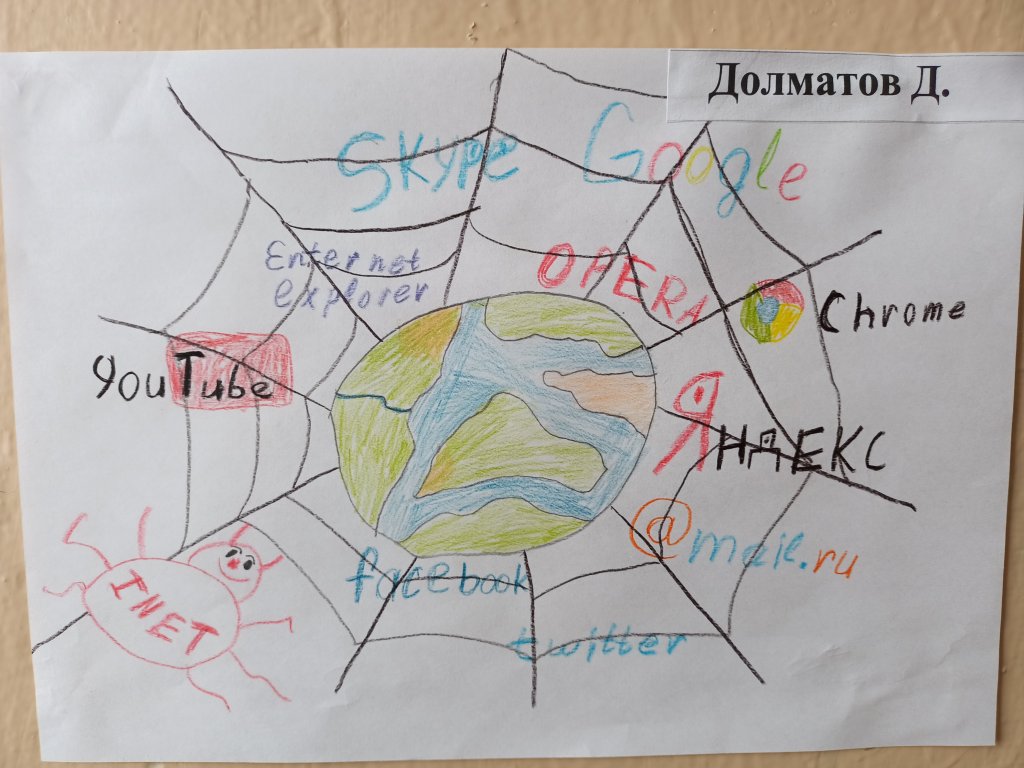 Долматов Д.
SKYPE Google
Enternet
explorer
OPERA
Chrome
YouTube
ЯНДЕКС
@mail.ru
facebook
INET
twitter